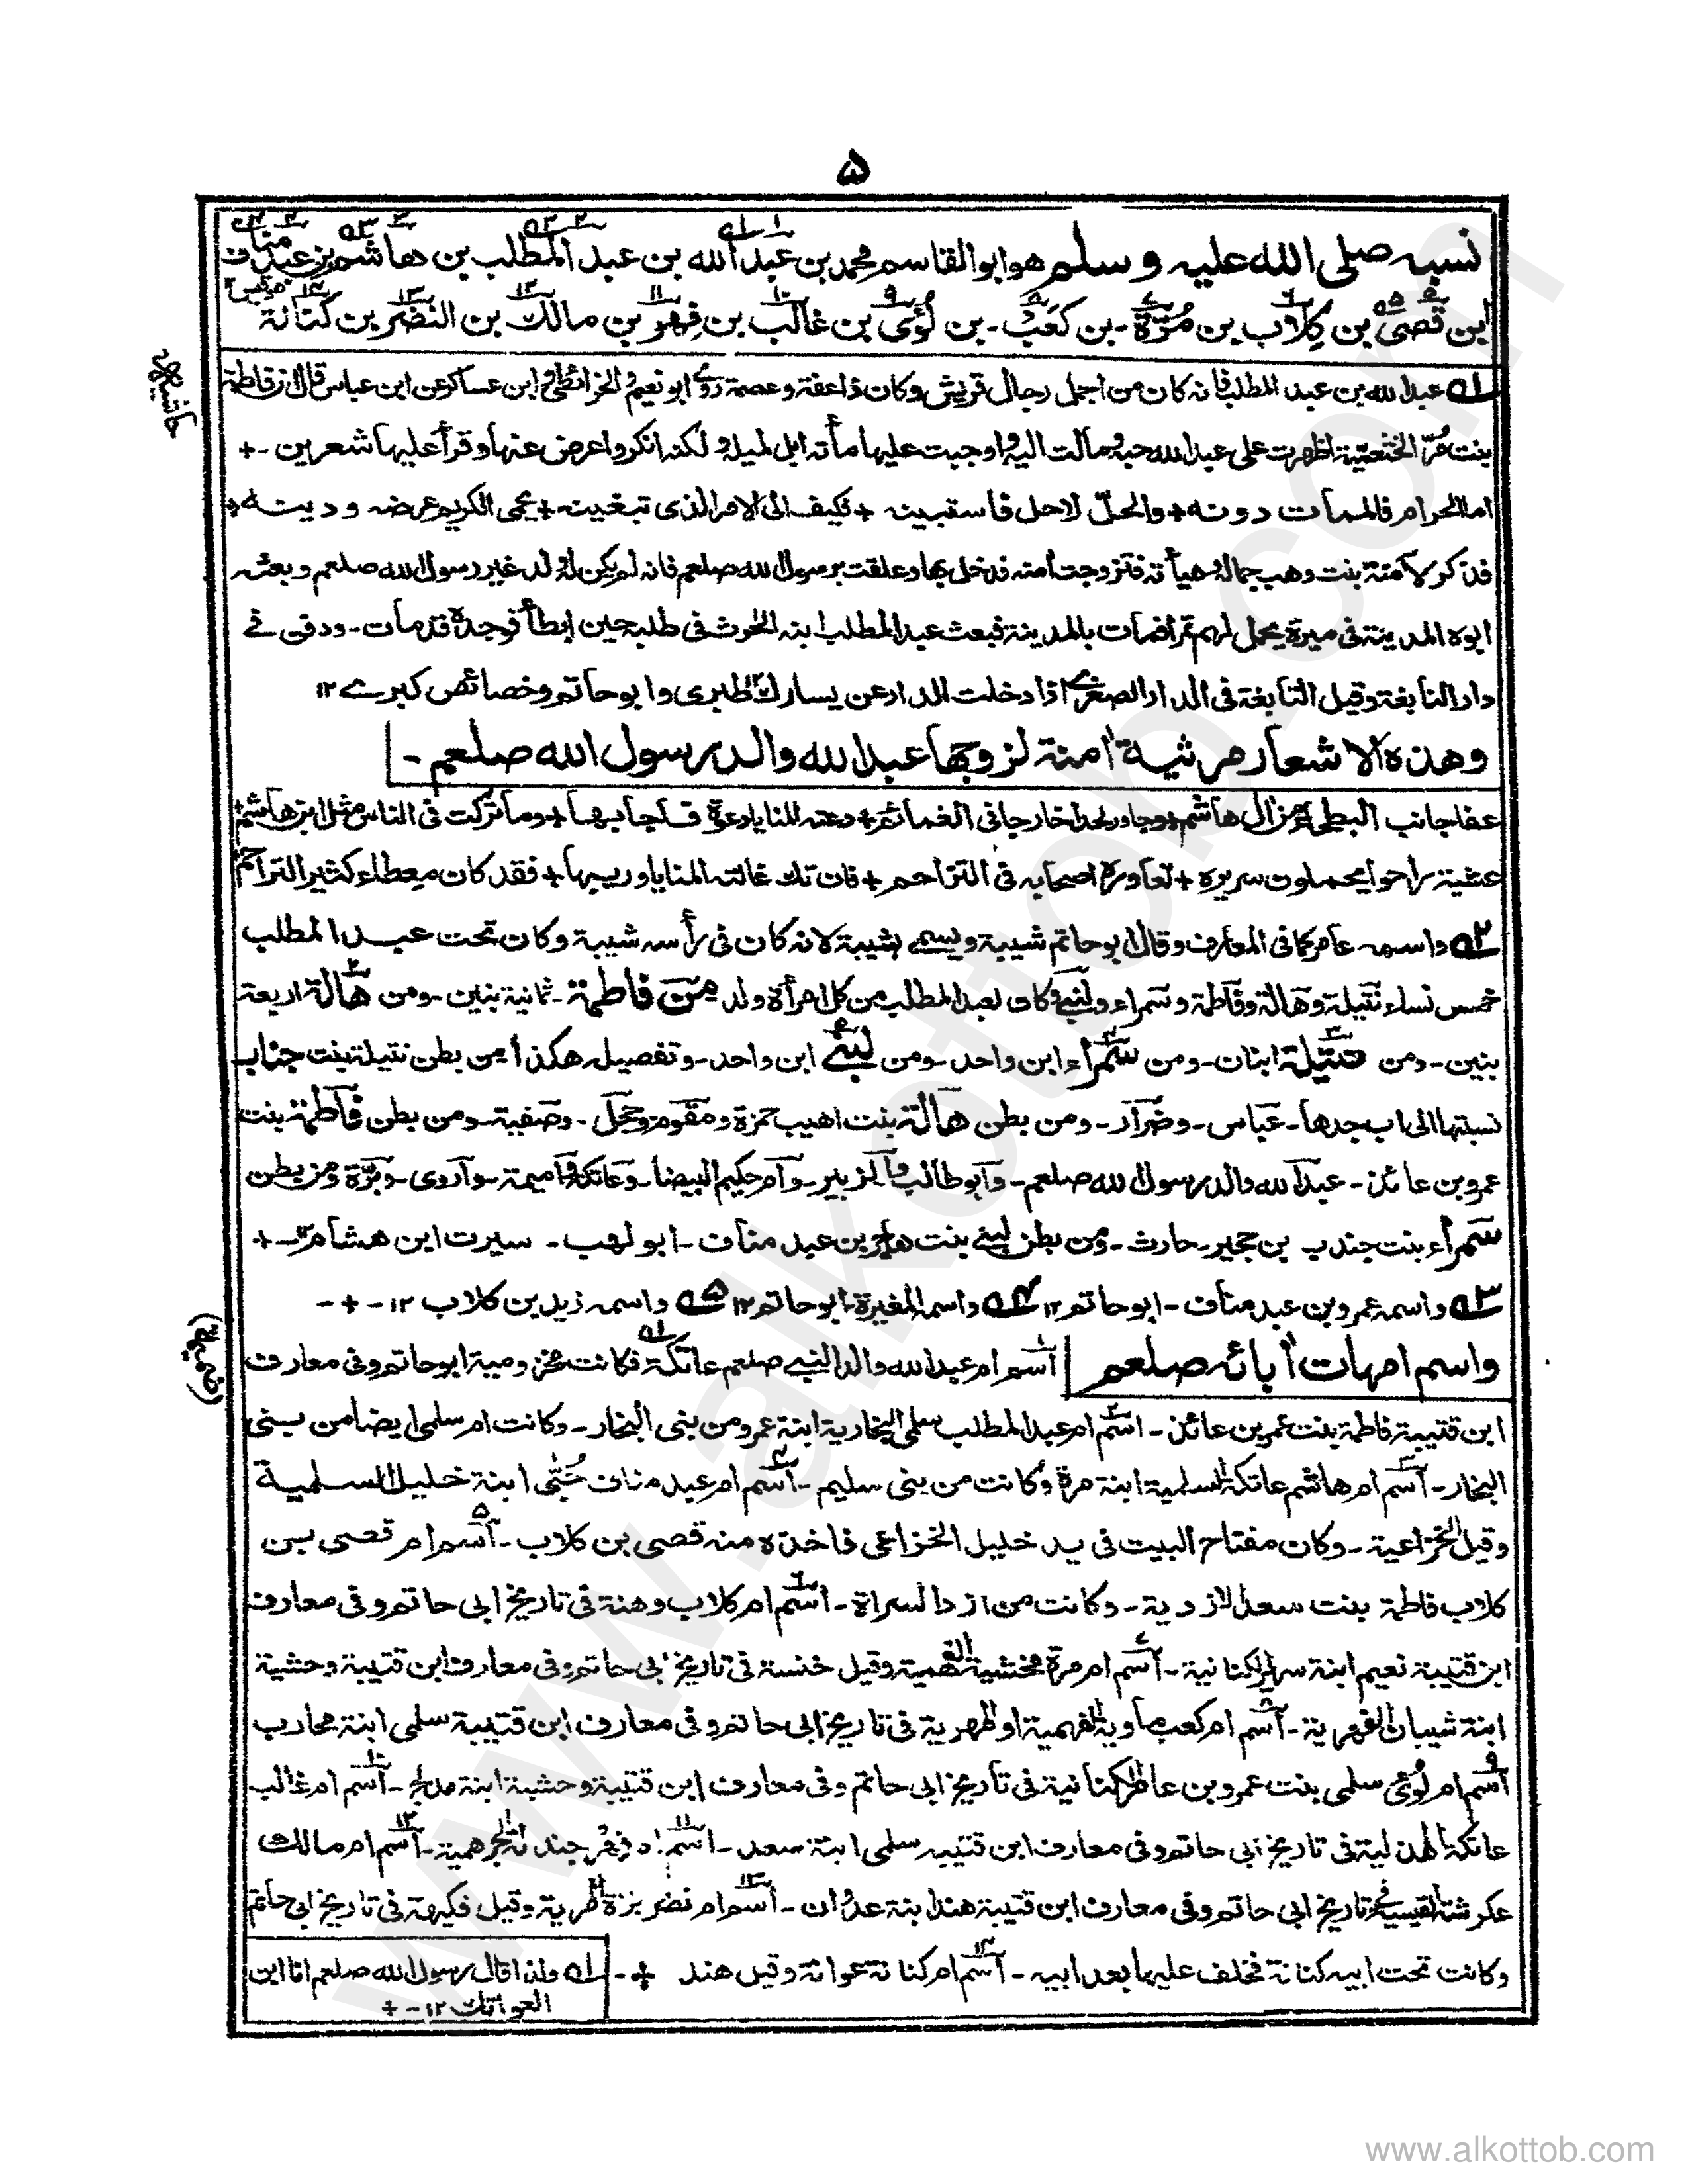 ۵
نسبہ صلی اللہ علیہ وسلم ھو ابو القاسم محمد بن عبد اللہ بن عبد المطلب بن ھاشم بن عبد مناف
ابن قصی بن کلاب بن مُرّۃ۔ بن کعب۔ بن لُؤی بن غالب بن فِھر بن مالک بن النضر بن کنانۃ
حاشیہ
۱ عبد اللہ بن عبد المطلب فانہ کان من اجمل رجال قریش وکان ذا عفۃ وعصمۃ روے ابو نعیم والخرائطی وابن عساکر عن ابن عباس قال ان فاطمۃ
بنت مُرّ الخثعمیۃ اظھرت علی عبد اللہ حبہ ومالت الیہ واوجبت علیھا مأتہ ابل لمیلہ ولکنہ انکر واعرض عنھا وقرأ علیھا شعرین ۔+
اما الحرام فالممات دونہ + والحلّ لا حل فاستبینہ + فکیف الی الامر الذی تبغینہ + یحمی الکریم عرضہ ودینہ +
فذکر لآمنۃ بنت وھب جمالہ وھیأتہ فتزوجت آمنہ فدخل بھا وعلقت برسول اللہ صلعم فانہ لم یکن لہ ولد غیر رسول اللہ صلعم وبعثہ
ابوہ المدینۃ فی میرۃ یحمل لھم تمرا فمات بالمدینۃ فبعث عبد المطلب ابنہ الحٰرث فی طلبہ حین ابطأ فوجدہ قد مات۔ ودفن فے
دار النابغۃ وقیل التابغۃ فی الدار الصغرے اذا دخلت الدار عن یسارک ۱۲ طبری وابو حاتم وخصائص کبرے ۱۲
وھذہ الاشعار مرثیۃ اٰمنۃ لزوجھا عبد اللہ والد رسول اللہ صلعم ۔
عفا جانب البطحاء من اٰل ھاشم + وجاور لحدا خارجا فی الغمائم + دعتہ المنایا دعوۃ فاجابھا + وما ترکت فی الناس مثل ابن ھاشم +
عشیۃ راحوا یحملون سریرہ + تعاورہ اصحابہ فی التزاحم + فان تک غالتہ المنایا وریبھا + فقد کان معطاء کثیر التراحم +
۲ واسمہ عامر کما فی المعارف وقال ابو حاتم شیبۃ ویسمے بشیبۃ لانہ کان فی رأسہ شیبۃ وکان تحت عبد المطلب
خمس نساء نتیلۃ وھالۃ وفاطمۃ وسمراء ولبنے وکان لعبد المطلب من کل امرأۃ ولد من فاطمۃ ۔ ثمانیۃ بنین ۔ ومن ھالۃ اربعۃ
بنین۔ ومن نتیلۃ ابنان۔ ومن سمراء ابن واحد۔ ومن لبنے ابن واحد۔ وتفصیلہ ھکذا من بطن نتیلۃ بنت جناب
نسبتھا الی اب جدھا۔ عباس۔ وضرار۔ ومن بطن ھالۃ بنت اھیب حمزۃ ومقوم وحجل ۔ وصفیۃ۔ ومن بطن فاطمۃ بنت
عمرو بن عائذ۔ عبد اللہ والد رسول اللہ صلعم۔ وابو طالب والزبیر۔ وام حکیم البیضا۔ وعاتکۃ وامیمۃ۔ واروی۔ وبرّۃ ومن بطن
سمراء بنت جندب بن حجیر۔ حارث۔ ومن بطن لبنے بنت ھاجر بن عبد مناف۔ ابو لھب۔ سیرت ابن ھشام ۱۲ ۔+
۳ واسمہ عمرو بن عبد مناف۔ ابو حاتم ۱۲ ۴ واسمہ المغیرۃ ابو حاتم ۱۲ ۵ واسمہ زید بن کلاب ۱۲ ۔+۔
واسم امھات اٰبائہ صلعم
اسم ام عبد اللہ والد النبے صلعم عاتکۃ فکانت مخزومیۃ ابو حاتم وفی معارف
ابن قتیبۃ فاطمۃ بنت عمر بن عائذ۔ اسم ام عبد المطلب سلمی النجاریۃ ابنۃ عمرو من بنی النجار۔ وکانت ام سلمی ایضا من بنی
النجار۔ اسم ام ھاشم عاتکۃ السلمیۃ ابنۃ مرۃ وکانت من بنی سلیم۔ اسم ام عبد مناف حُبّٰی ابنۃ خلیل السلمیۃ
وقیل الخزاعیۃ۔ وکان مفتاح البیت فی ید خلیل الخزاعی فاخذہ منہ قصی بن کلاب۔ اسم ام قصی بن
کلاب فاطمۃ بنت سعد الازدیۃ۔ وکانت من ازد السراۃ۔ اسم ام کلاب وھنۃ فی تاریخ ابی حاتم وفی معارف
ابن قتیبۃ نعیم ابنۃ سریر الکنانیۃ۔ اسم ام مرۃ مخشیۃ الفھمیۃ وقیل خنسۃ فی تاریخ ابی حاتم وفی معارف ابن قتیبۃ وحشیۃ
ابنۃ شیبان الفھریۃ۔ اسم ام کعب ماویۃ الفھمیۃ او المھریۃ فی تاریخ ابی حاتم وفی معارف ابن قتیبۃ سلمی ابنۃ محارب
اسم ام لُوئی سلمی بنت عمرو بن عامر الکنانیۃ فی تاریخ ابی حاتم وفی معارف ابن قتیبۃ وحشیۃ ابنۃ مدلج۔ اسم ام غالب
عاتکۃ الھذلیۃ فی تاریخ ابی حاتم وفی معارف ابن قتیبہ سلمی ابتۃ سعد۔ اسم ام فھر جندلۃ الجرھمیۃ۔ اسم ام مالک
عکرشۃ القیسیۃ فے تاریخ ابی حاتم وفی معارف ابن قتیبۃ ھند ابنۃ عدوان۔ اسم ام نضر برۃ المریۃ وقیل فکیھۃ فی تاریخ ابی حاتم
وکانت تحت ابیہ کنانۃ فخلف علیھا بعد ابیہ۔ اسم ام کنانۃ عوانۃ وقیل ھند +۔
۱ ولذا قال رسول اللہ صلعم انا ابن
العواتک ۱۲ ۔+
www.alkottob.com